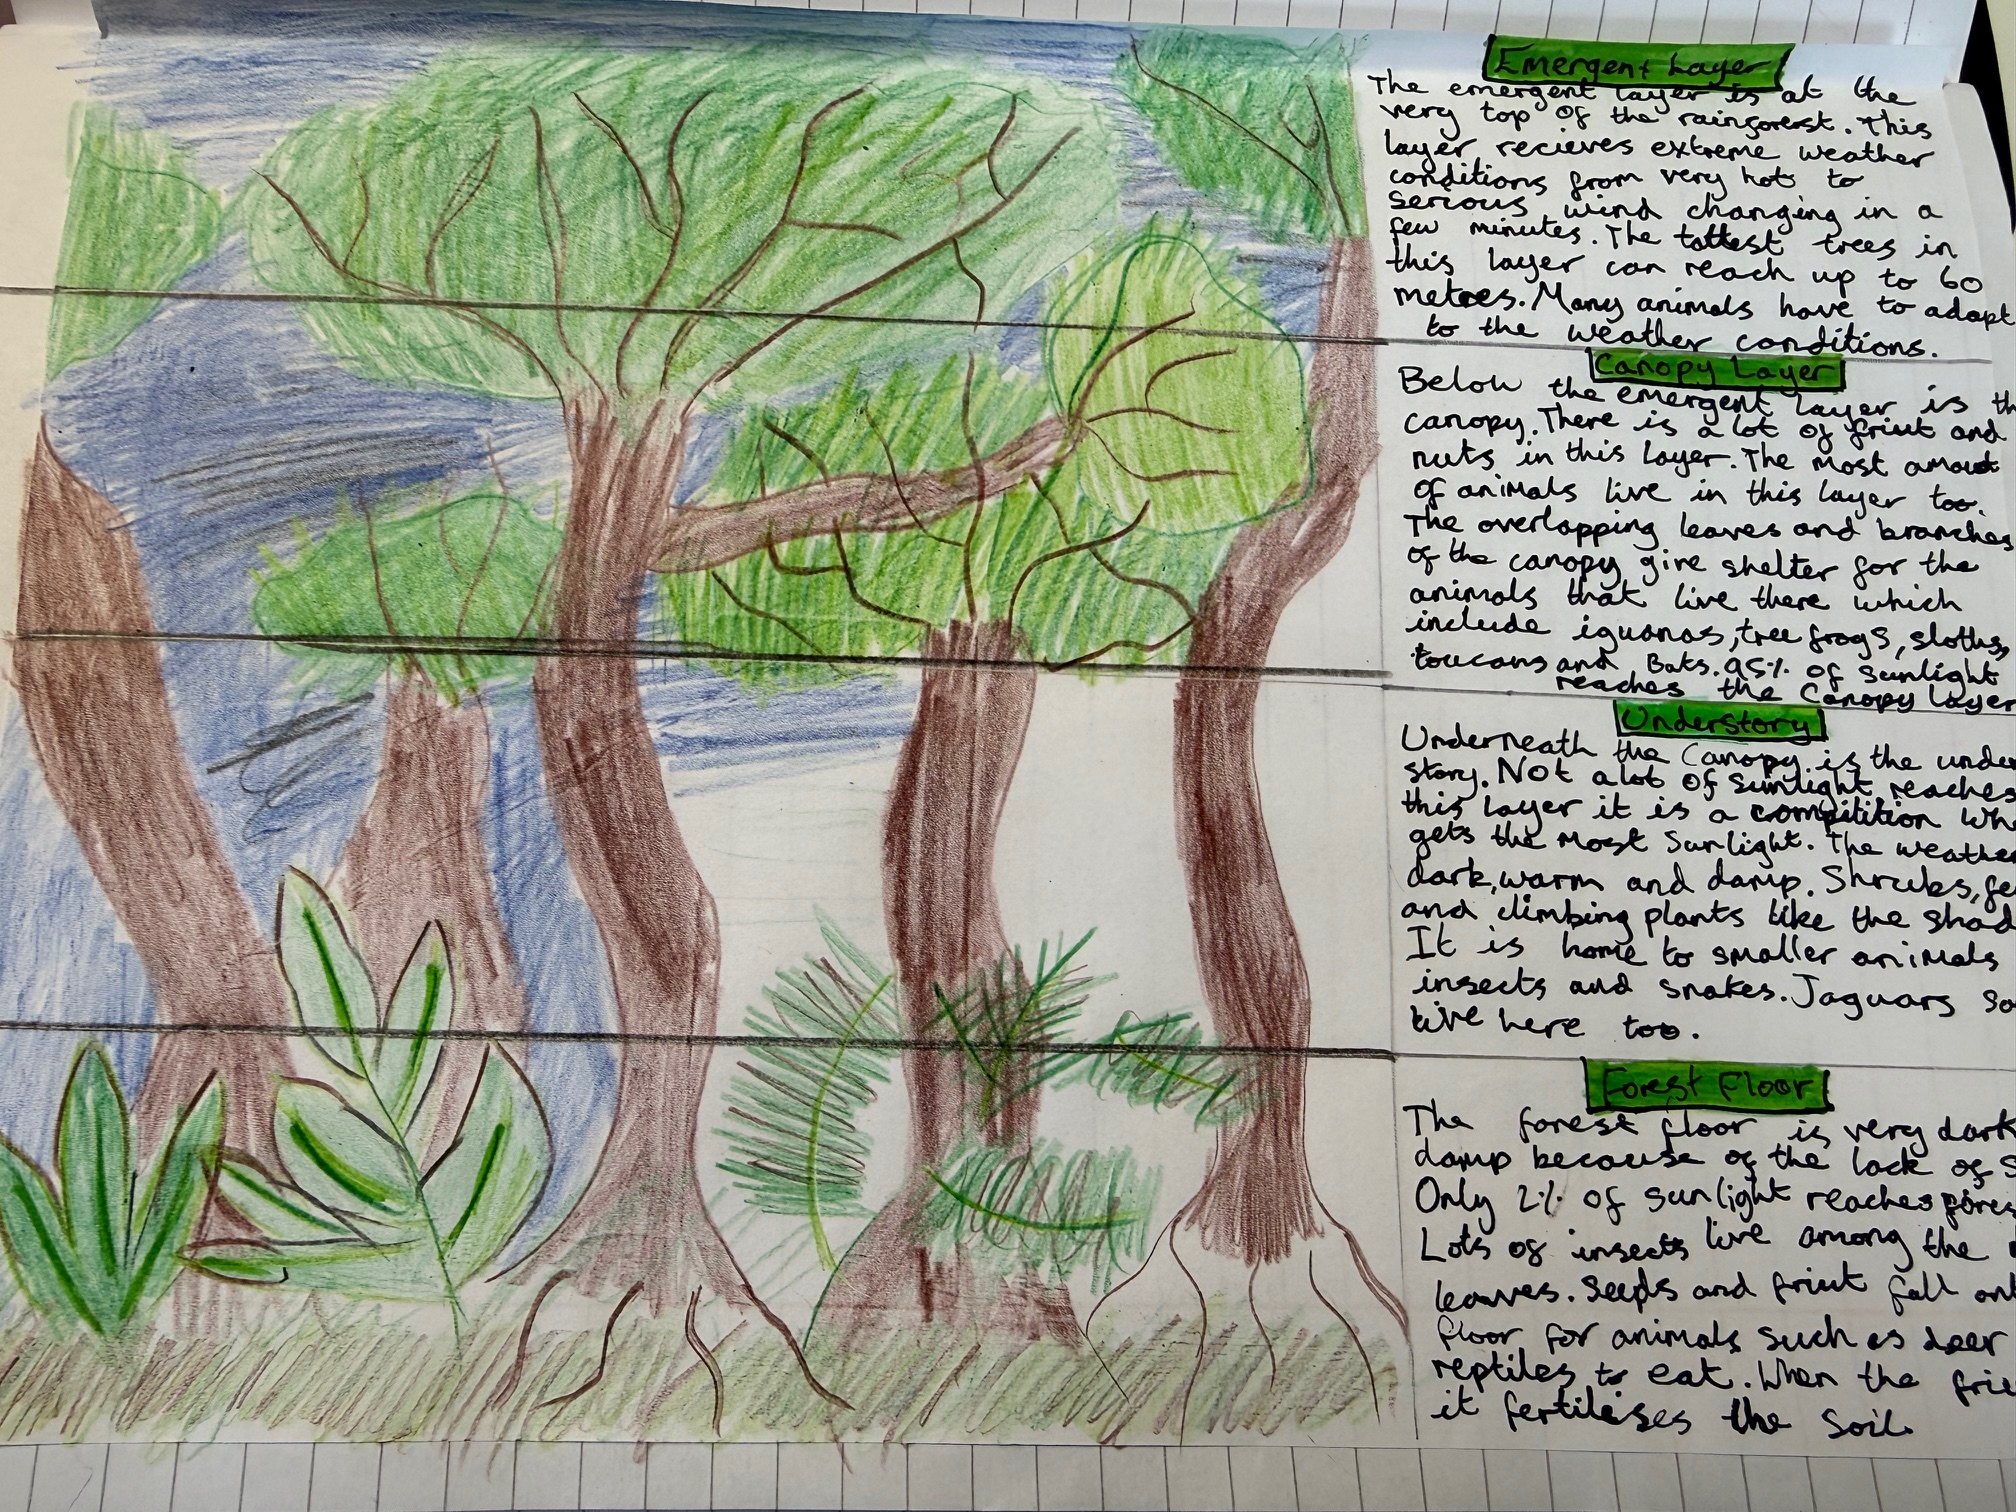 Emergent Layer
The emergent layer is at the
very top of the rainforest. This
layer recieves extreme weather
conditions from very hot to
serious wind changing in a
few minutes. The tallest trees in
this layer can reach up to 60
metres. Many animals have to adapt
to the weather conditions.
Canopy Layer
Below the emergent layer is th
canopy. There is a lot of friut and
nuts in this layer. The most amount
of animals live in this layer too.
The overlapping leaves and branches
of the canopy give shelter for the
animals that live there which
include iguanas, tree frogs, sloths,
toucans and Bats. 95% of sunlight
reaches the Canopy layer
Understory
Underneath the Canopy is the under
story. Not a lot of sunlight reaches
this layer it is a compitition wh
gets the most sunlight. The weather
dark, warm and damp. Shrubs, fe
and climbing plants like the shad
It is home to smaller animals
insects and snakes. Jaguars so
live here too.
Forest Floor
The forest floor is very dark
damp because of the lack of s
Only 2% of sunlight reaches fores
Lots of insects live among the
leaves. Seeds and friut fall ont
floor for animals such as deer
reptiles to eat. When the friu
it fertilises the soil.